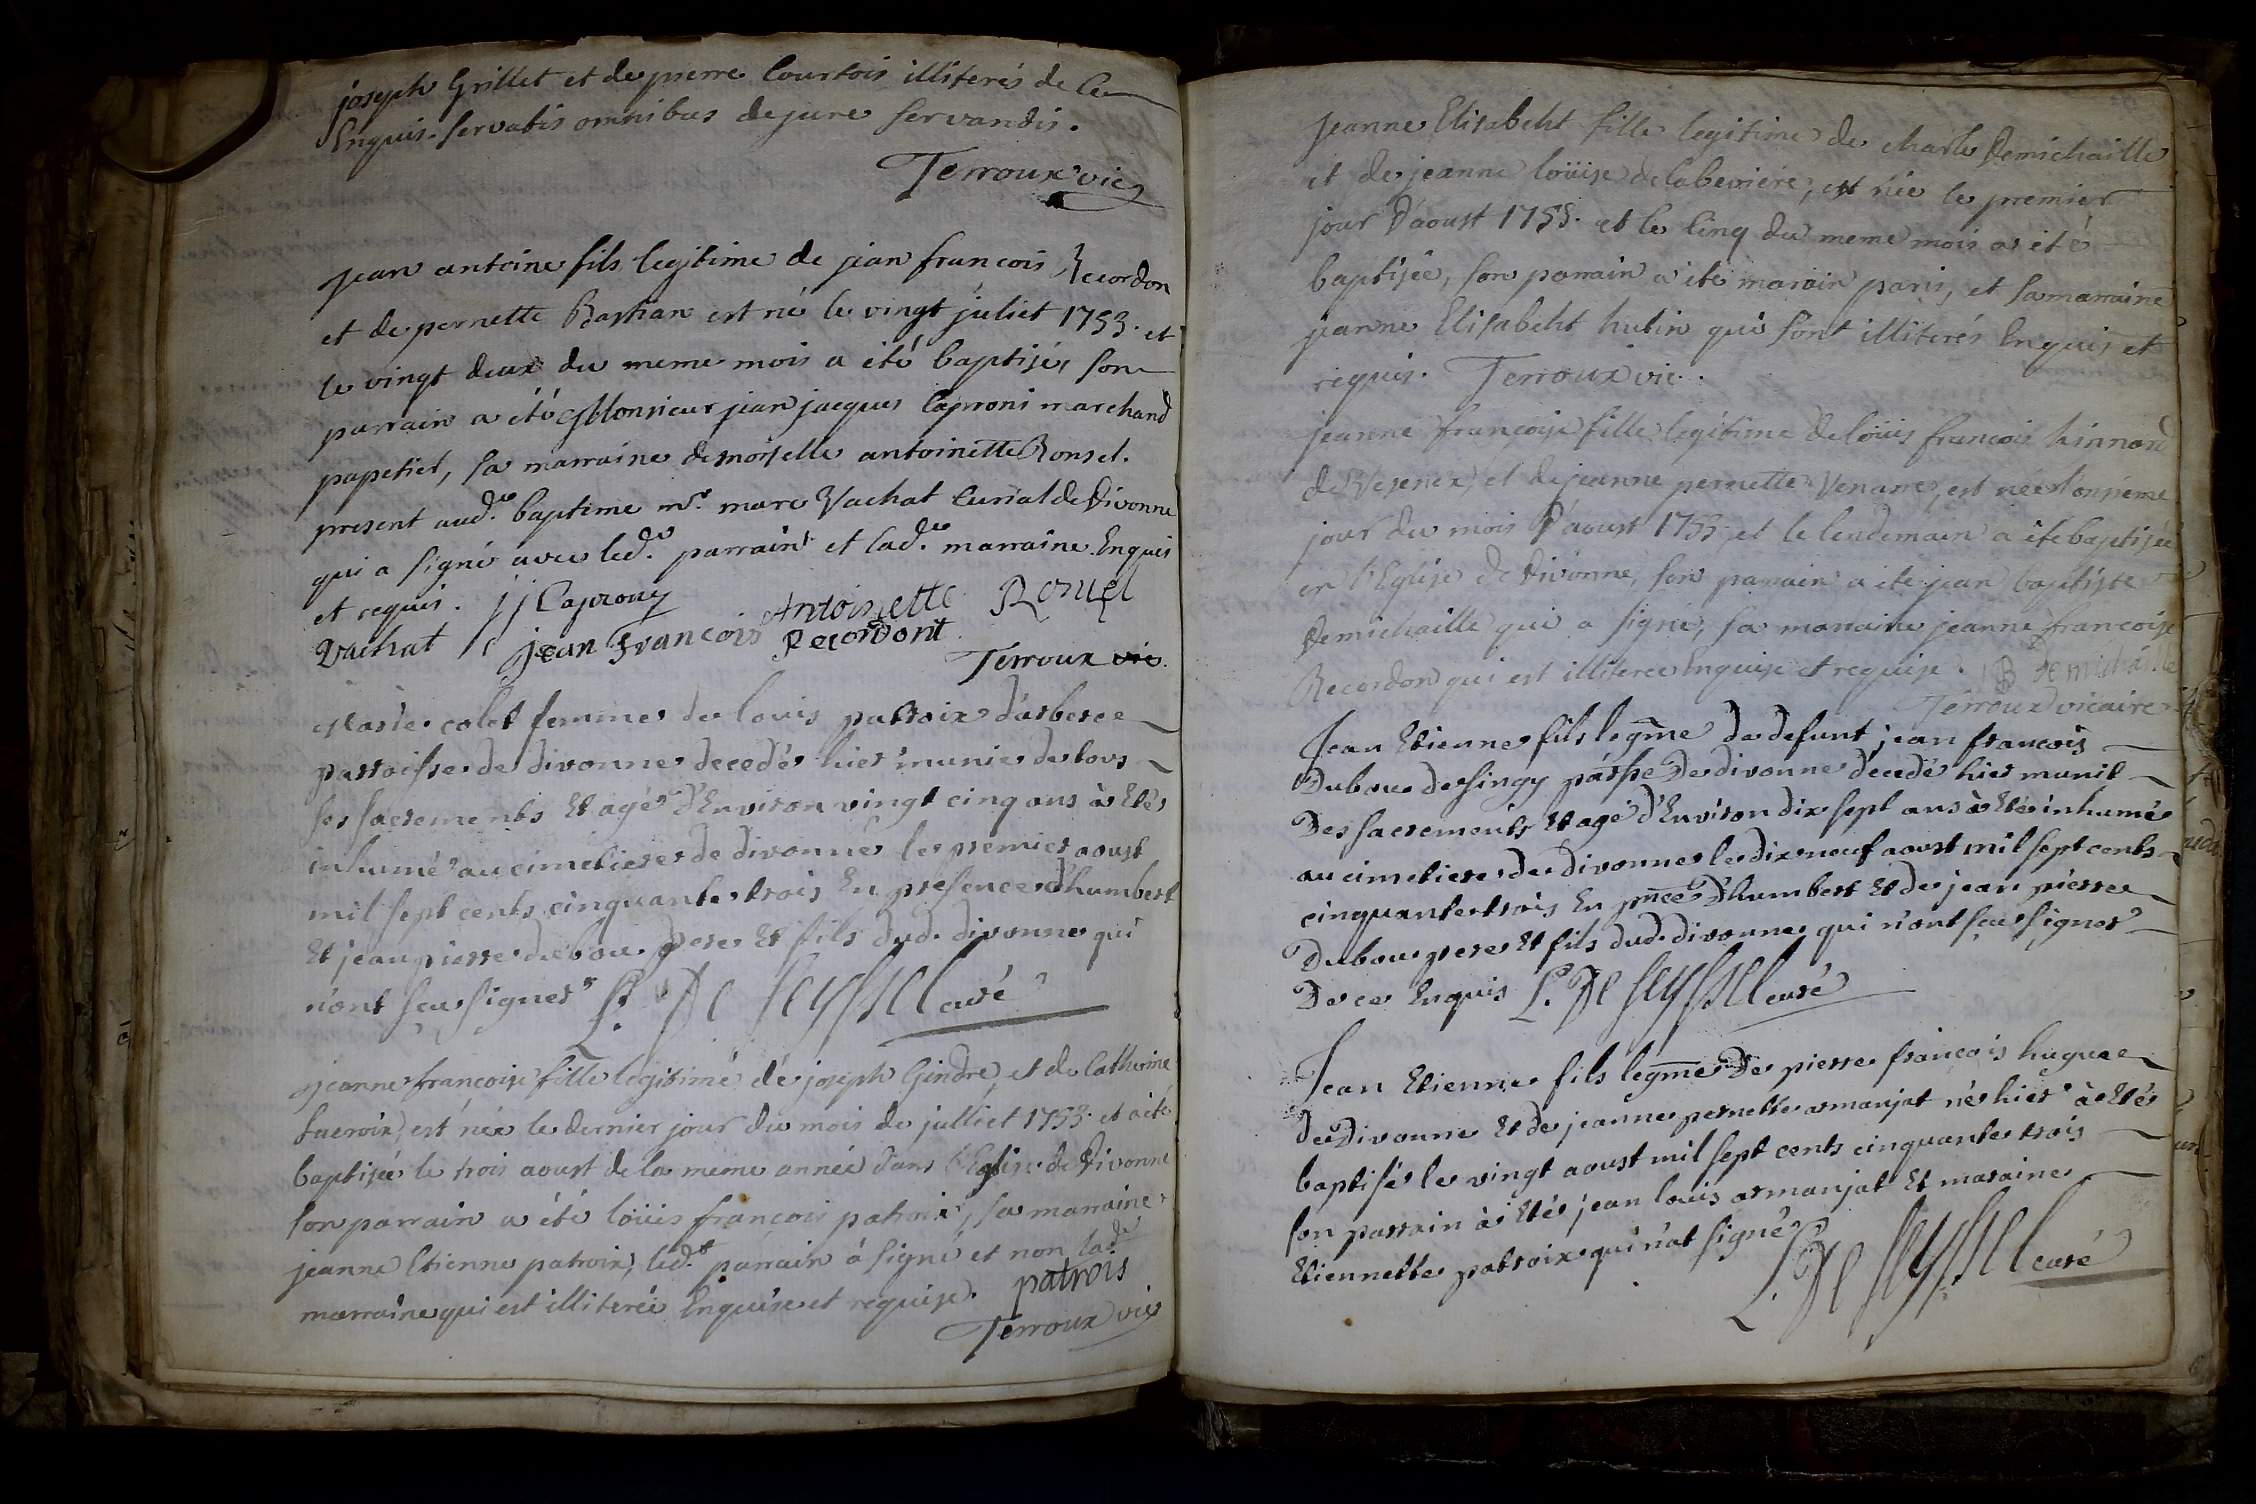 joseph Grillet et de pierre Courtois illiterés de Ce
Enquis. servatis omnibus de jure servandis.
Terroux vic
Jean antoine fils legitime de jean francois Recordon
et de pernette Bastian est né le vingt juliet 1753. et
le vingt deux du meme mois a été baptisé, son
parrain a été Monsieur jean jacques Caproni marchand
papetier, sa marraine demoiselle antoinette Ronsel.
present aud. baptime mr. marc Vachat Curial de Divonne
qui a signé avec led. parrain et lad. marraine. Enquis
et requis. JJ Caprony Antoinette
Vachat jean Francois Recordont
Terroux vic.
Marie colet femme de louis patroix d'arbere
parroisse de divonne decedé hier munie de tous
ses sacrements Et agé d'Environ vingt cinq ans à Eté
inhumé au cimetiere de divonne le premier aoust
mil sept cents cinquante trois En presence d'humbert
Et jean pierre dubou pere Et fils dud. divonne qui
n'ont sceu signer L. De Seyssel curé
jeanne françoise fille legitime de joseph Gindre, et de Catherine
Lacroix, est née le dernier jour du mois de julliet 1753. et a été
baptisée le trois aoust de la meme année dans l'Eglise de Divonne
son parrain a été loüis françois patroix, sa marraine
jeanne Etienne patroix, led. parrain à signé et non lad.
marraine qui est illiterée Enquise et requise. patrois
Terroux vic
Jeanne Elisabeht fille legitime de charle Demichaille
et de jeanne loüise, est née le premier
jour d'aoust 1753. et le Cinq du meme mois a été
baptisée, son parrain a été paris, et sa marraine
jeanne Elisabeht hutin qui sont illiterés Enquis et
requis. Terroux vic.
jeanne françoise fille legitime de loüis francois
de Vesenex, et de jeanne pernette, est née l'onsieme
jour du mois d'aoust 1753, et le lendemain a été baptisée
en l'Eglise de Divonne, son parrain a été jean baptiste
Demichaille qui a signé, sa marraine jeanne françoise
Recordon qui est illiteree Enquise et requise. JB Demichaille
Terroux vicaire
Jean Etienne fils legme de defunt jean francois
Dubou de singy parsse de divonne decedé hier munit
Des sacrements Et agé d'Environ dix sept ans à Eté inhumé
au cimetiere de divonne le dix neuf aoust mil sept cents
cinquante trois En pnce d'humbert Et de jean pierre
Dubou pere Et fils dud. divonne qui n'ont sceu signer
De ce Enquis L. De Seyssel curé
Jean Etienne fils legme de pierre françois hugue
de Divonne Et de jeanne pernette armanjat né hier à Eté
baptisé le vingt aoust mil sept cents cinquante trois
son parrain à Eté jean louis armanjat Et maraine
Etiennette patroix qui n'at signé
L. De Seyssel curé